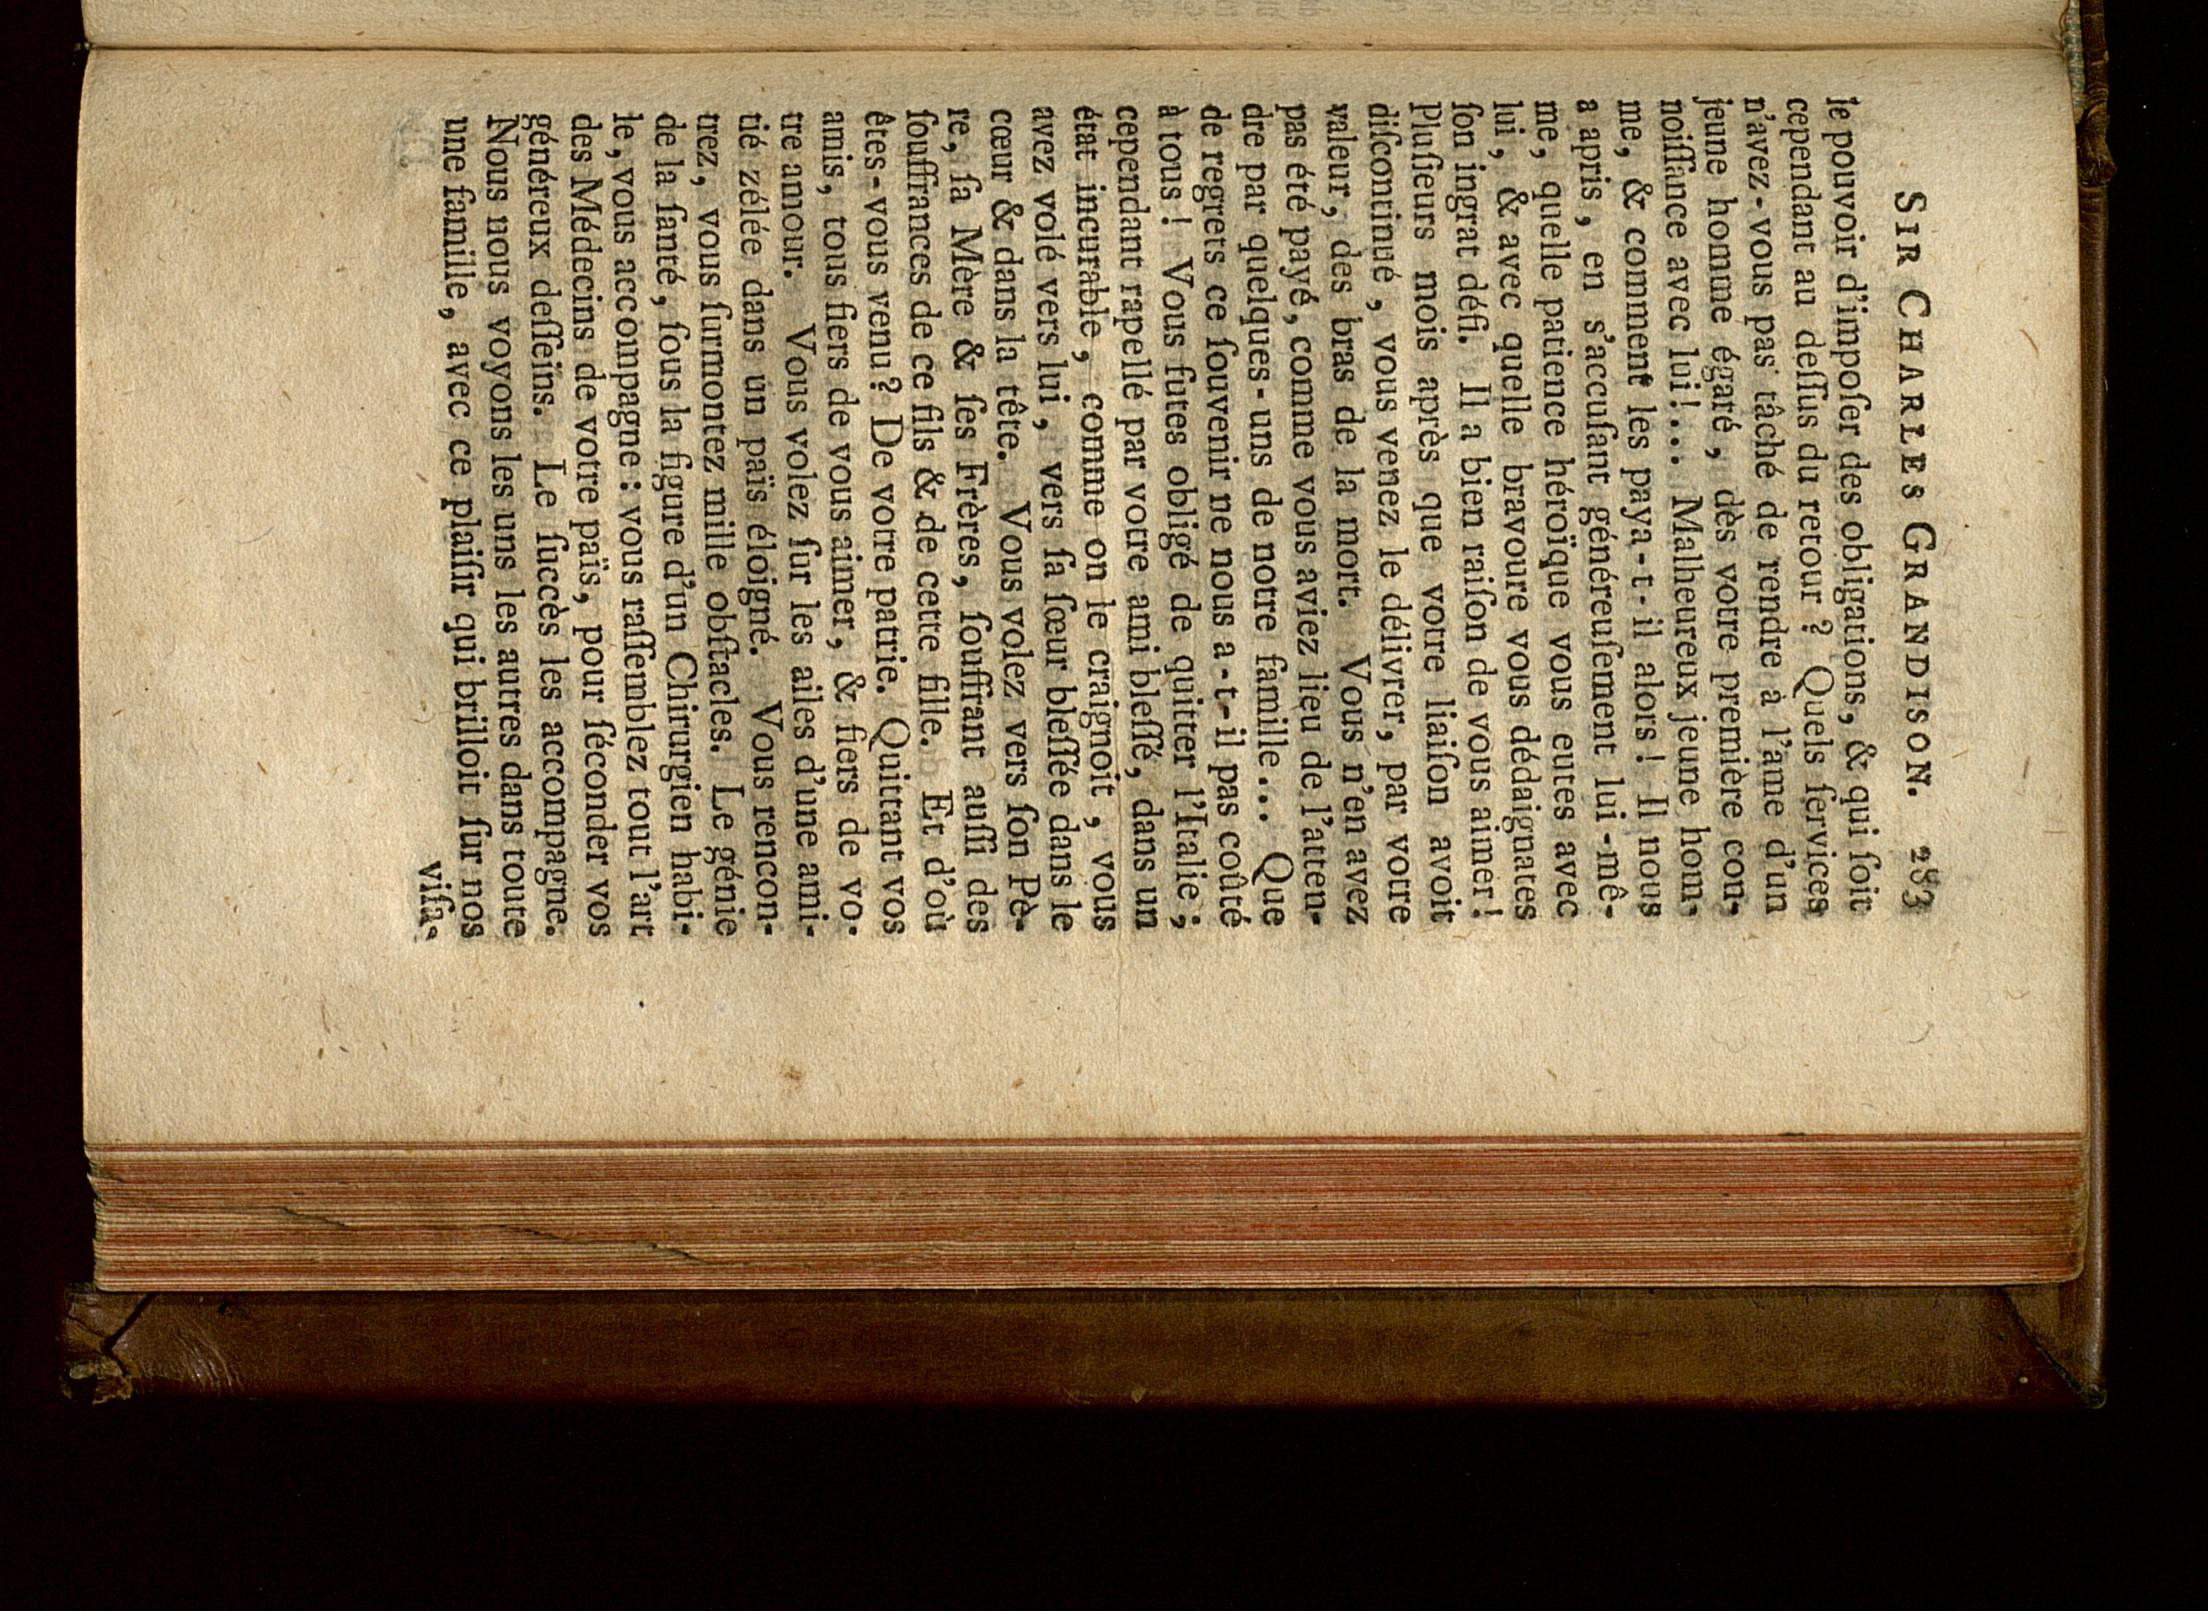 SIR CHARLES GRANDISON. 283
le pouvoir d'impoſer des obligations, & qui ſoit
cependant au deſſus du retour? Quels ſervices
n'avez-vous pas tâché de rendre à l'ame d'un
jeune homme égaré, dès votre première con-
noiſſance avec lui!... Malheureux jeune hom-
me, & comment les paya-t-il alors! Il nous
a apris, en s'accuſant généreuſement lui-mê-
me, quelle patience héroïque vous eutes avec
lui, & avec quelle bravoure vous dédaignates
ſon ingrat défi. Il a bien raiſon de vous aimer!
Pluſieurs mois après que votre liaiſon avoit
diſcontinué, vous venez le délivrer, par votre
valeur, des bras de la mort. Vous n'en avez
pas été payé, comme vous aviez lieu de l'atten-
dre par quelques-uns de notre famille... Que
de regrets ce ſouvenir ne nous a-t-il pas coûté
à tous! Vous futes obligé de quitter l'Italie;
cependant rapellé par votre ami bleſſé, dans un
état incurable, comme on le craignoit, vous
avez volé vers lui, vers ſa ſœur bleſſée dans le
cœur & dans la tête. Vous volez vers ſon Pè-
re, ſa Mère & ſes Frères, ſouffrant auſſi des
ſouffrances de ce fils & de cette fille. Et d'où
êtes-vous venu? De votre patrie. Quittant vos
amis, tous fiers de vous aimer, & fiers de vo-
tre amour. Vous volez ſur les ailes d'une ami-
tié zélée dans un païs éloigné. Vous rencon-
trez, vous ſurmontez mille obſtacles. Le génie
de la ſanté, ſous la figure d'un Chirurgien habi-
le, vous accompagne: vous raſſemblez tout l'art
des Médecins de votre païs, pour ſéconder vos
généreux deſſeins. Le ſuccès les accompagne.
Nous nous voyons les uns les autres dans toute
une famille, avec ce plaiſir qui brilloit ſur nos
viſa-